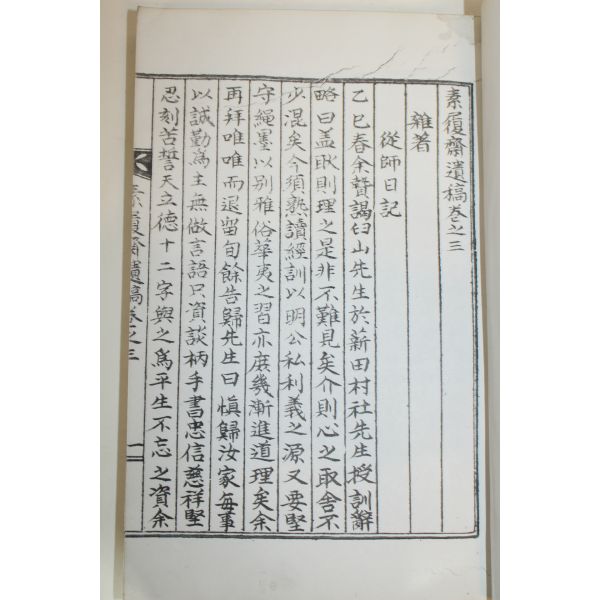 素履齋遺稿卷之三
雜著
從師日記
乙巳春余贄謁臼山先生於薪田村社先生授訓辭
略曰盖畎則理之是非不難見矣介則心之取舍不
少混矣今須熟讀經訓以明公私利義之源又要堅
守繩墨以別雅俗華夷之習亦庶幾漸進道理矣余
再拜唯唯而退留旬餘告歸先生曰愼歸汝家每事
以誠勤爲主無做言語只資談柄手書忠信慈祥堅
忍刻苦誓天立德十二字與之爲平生不忘之資余
素履齋遺稿卷之三
一